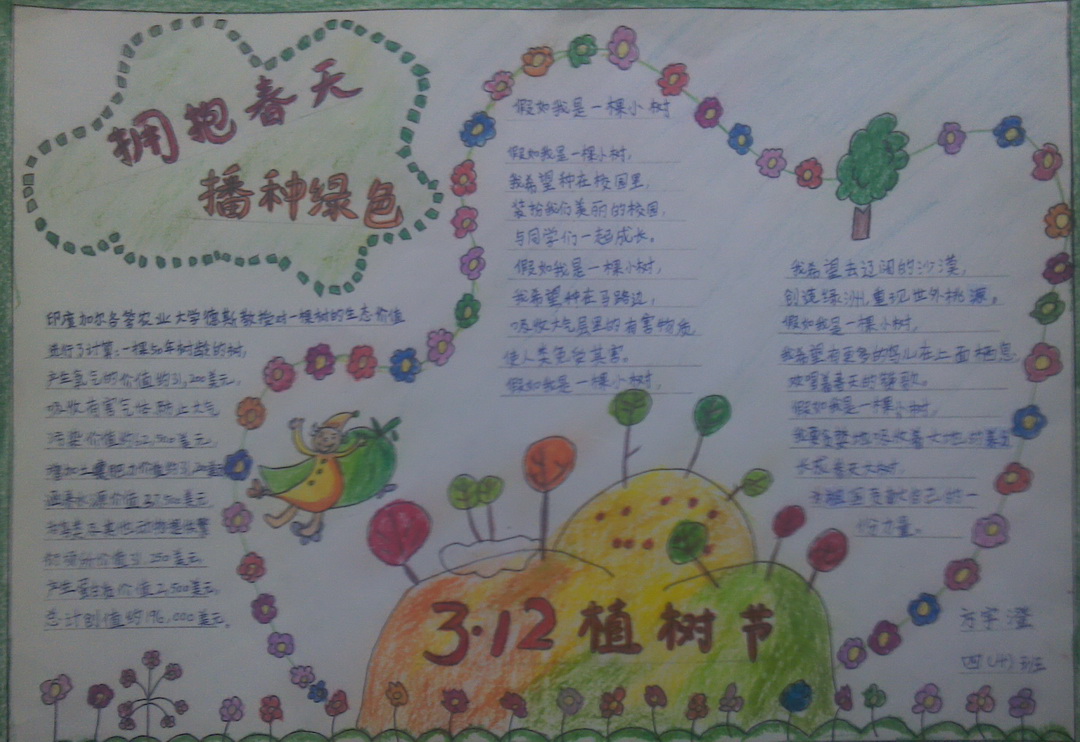 拥抱春天
播种绿色
印度加尔各答农业大学德斯教授对一棵树的生态价值
进行了计算：一棵50年树龄的树，
产生氧气的价值约31,200美元，
吸收有毒气体防止大气
污染价值约62,500美元，
增加土壤肥力价值约31,200美元
涵养水源价值37,500美元
为鸟类及其他动物提供繁
衍场所价值31,250美元
产生蛋白质价值2,500美元，
总计创值约196,000美元。
假如我是一棵小树
假如我是一棵小树，
我希望种在校园里，
装扮我们美丽的校园，
与同学们一起成长。
假如我是一棵小树，
我希望种在马路边，
吸收大气层里的有害物质
使人类免受其害。
假如我是一棵小树，
我希望去辽阔的沙漠，
创造绿洲，重现世外桃源。
假如我是一棵小树，
我希望有更多的鸟儿在上面栖息，
欢唱着春天的赞歌。
假如我是一棵小树，
长成参天大树，
为祖国贡献自己的一
份力量。
3·12 植树节
方宇滢